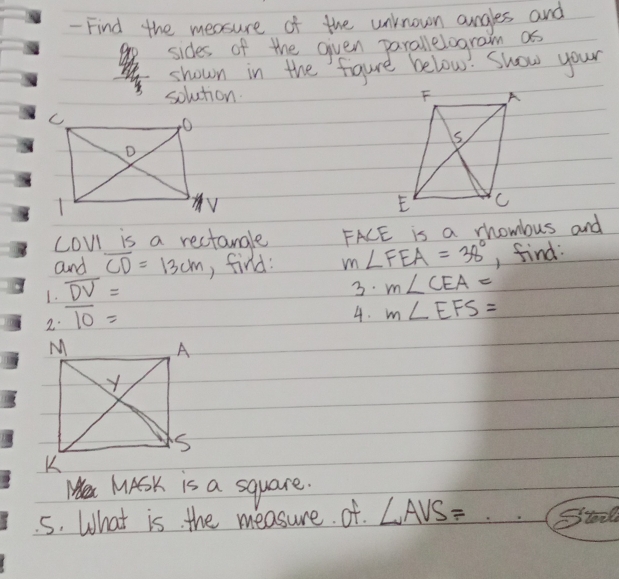 - Find the measure of the unknown angles and
sides of the given parallelogram as
shown in the figure below. Show your
solution.
C
O
D
I
V
F
A
S
E
C
COVI is a rectangle
and CD = 13cm, find:
1. DV =
2. IO =
FACE is a rhombus and
m∠FEA = 38°, find:
3. m∠CEA =
4. m∠EFS =
M
A
Y
K
S
MASK is a square.
5. What is the measure of ∠AVS =